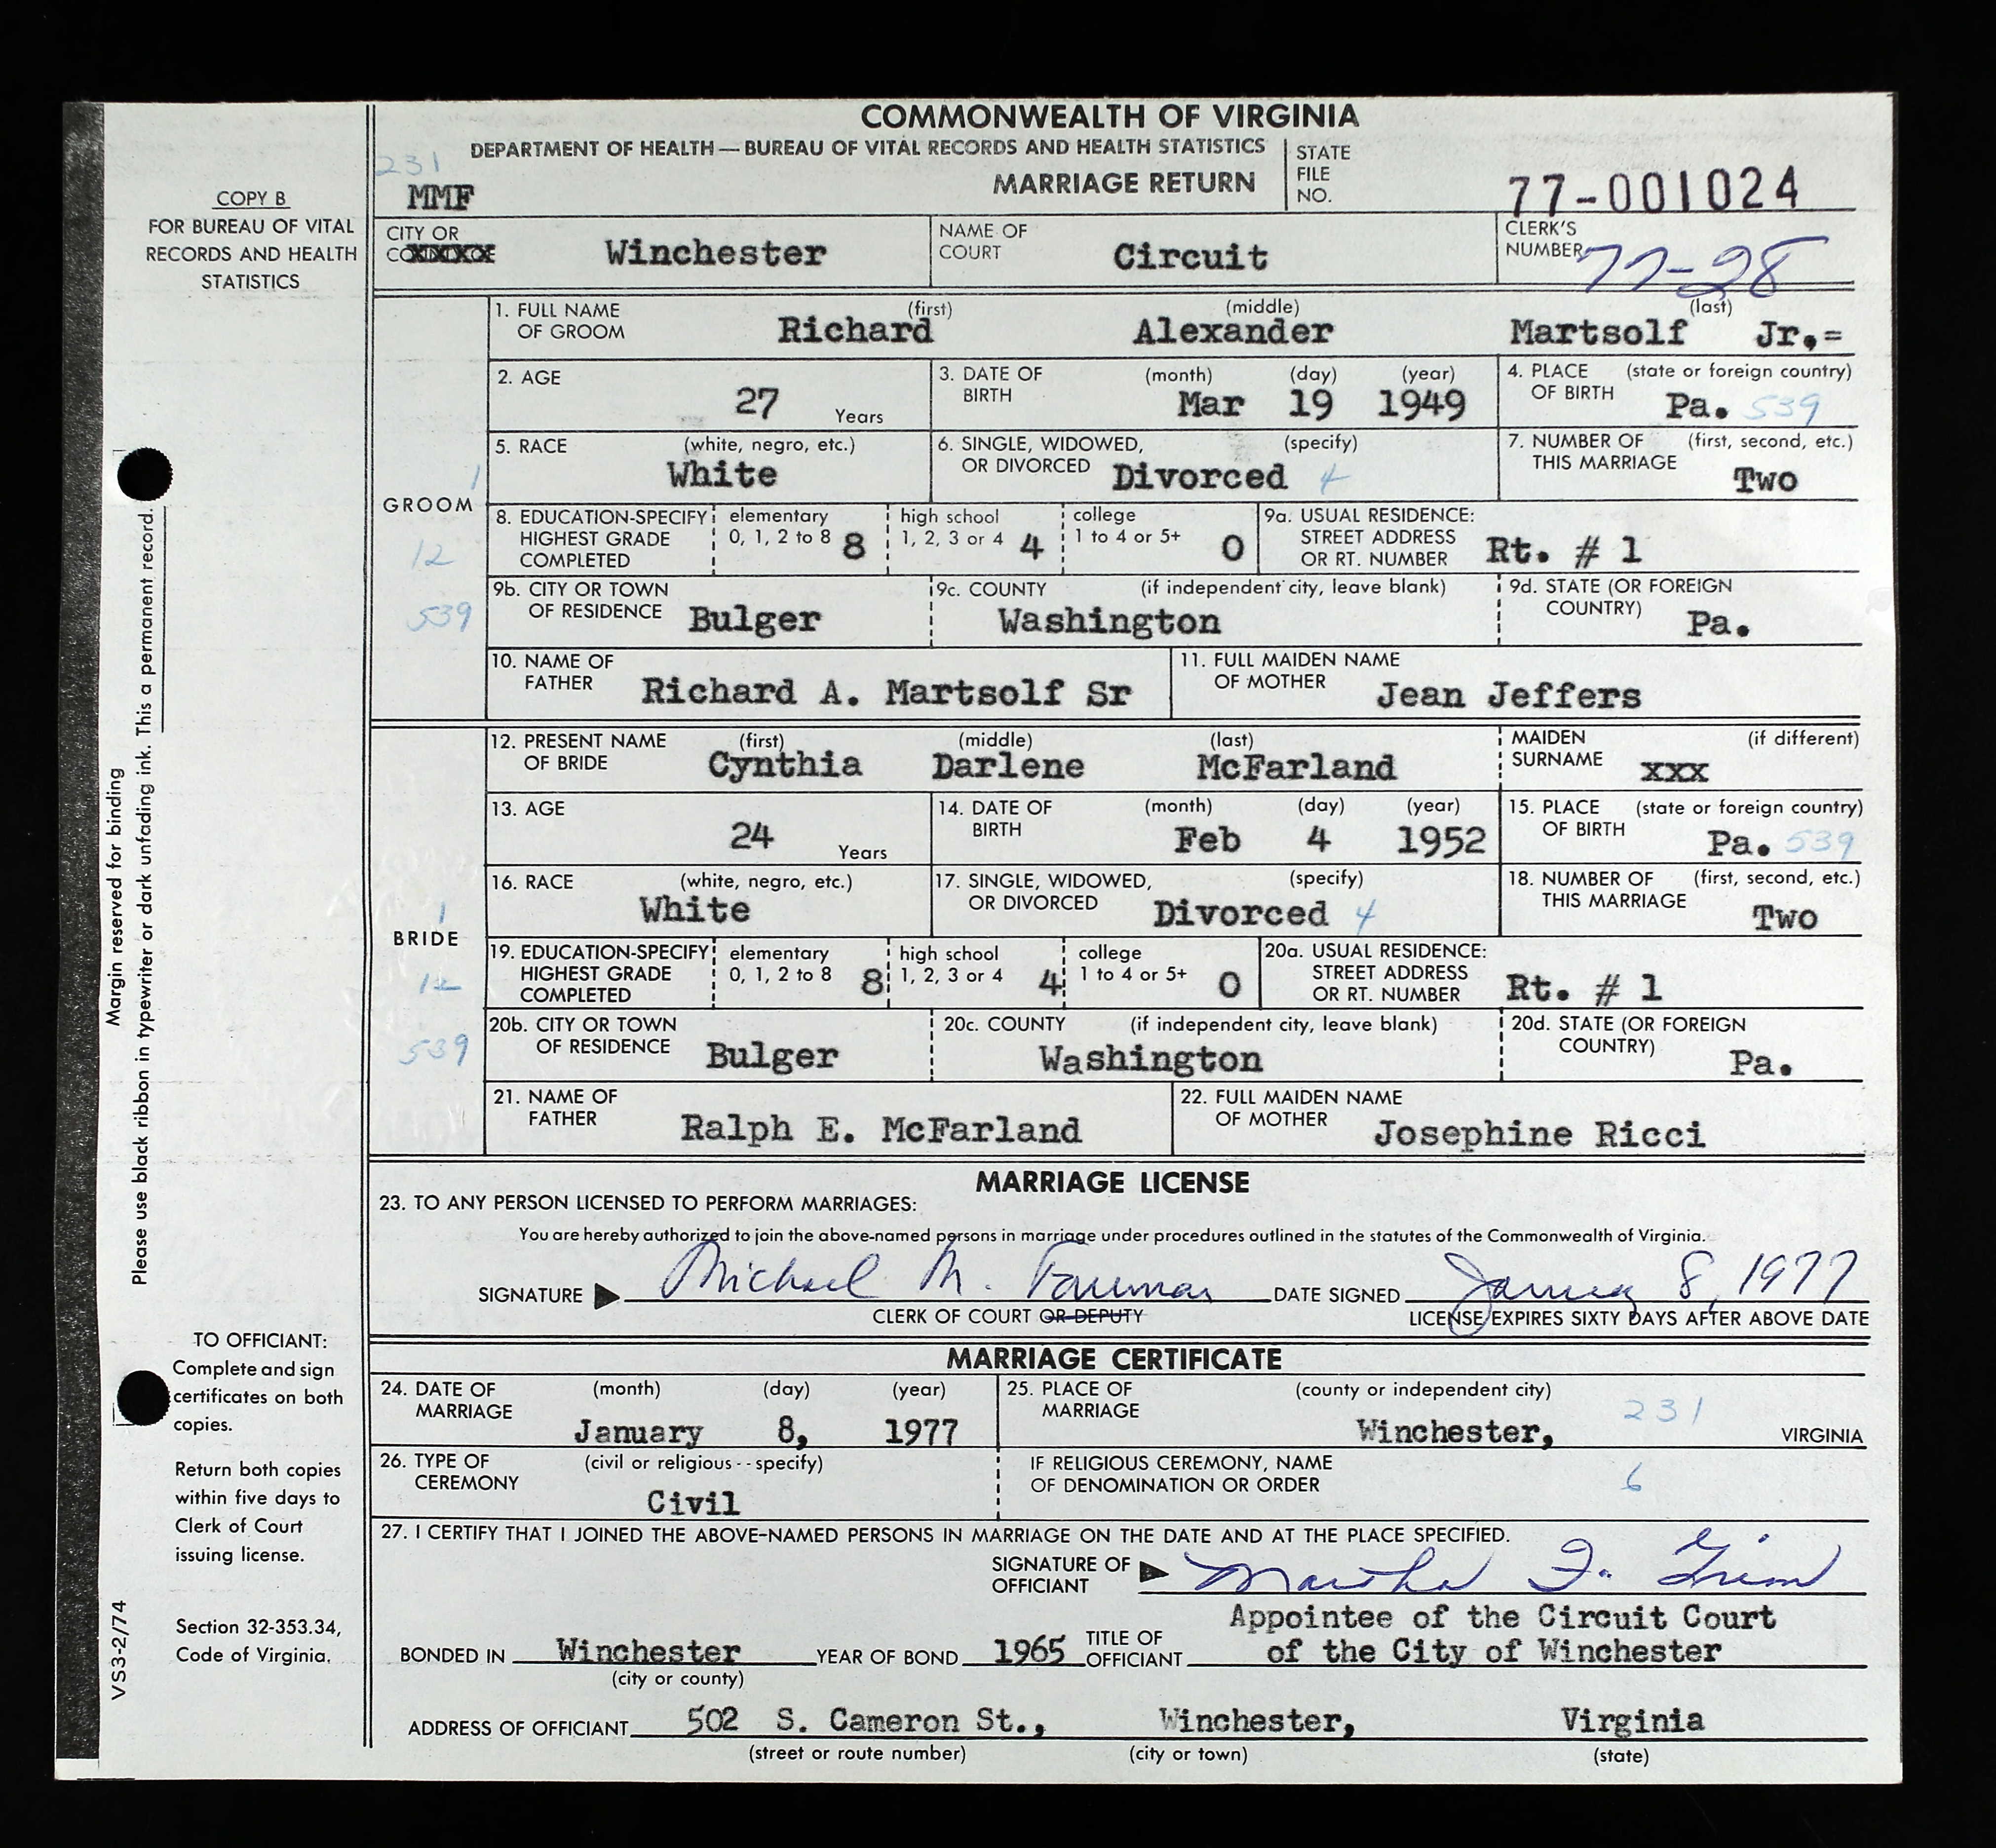 COMMONWEALTH OF VIRGINIA
DEPARTMENT OF HEALTH — BUREAU OF VITAL RECORDS AND HEALTH STATISTICS
MARRIAGE RETURN
STATE FILE NO. 77-001024
231
MMF
COPY B
FOR BUREAU OF VITAL
RECORDS AND HEALTH
STATISTICS
CITY OR Winchester
NAME OF COURT Circuit
CLERK'S NUMBER 77-98
GROOM
1
12
539
1. FULL NAME OF GROOM (first) Richard (middle) Alexander (last) Martsolf Jr.=
2. AGE 27 Years
3. DATE OF BIRTH (month) Mar (day) 19 (year) 1949
4. PLACE OF BIRTH (state or foreign country) Pa. 539
5. RACE (white, negro, etc.) White
6. SINGLE, WIDOWED, OR DIVORCED (specify) Divorced 4
7. NUMBER OF THIS MARRIAGE (first, second, etc.) Two
8. EDUCATION-SPECIFY HIGHEST GRADE COMPLETED elementary 0, 1, 2 to 8 8 high school 1, 2, 3 or 4 4 college 1 to 4 or 5+ 0
9a. USUAL RESIDENCE: STREET ADDRESS OR RT. NUMBER Rt. # 1
9b. CITY OR TOWN OF RESIDENCE Bulger
9c. COUNTY (if independent city, leave blank) Washington
9d. STATE (OR FOREIGN COUNTRY) Pa.
10. NAME OF FATHER Richard A. Martsolf Sr
11. FULL MAIDEN NAME OF MOTHER Jean Jeffers
BRIDE
1
12
539
12. PRESENT NAME OF BRIDE (first) Cynthia (middle) Darlene (last) McFarland
MAIDEN SURNAME (if different) xxx
13. AGE 24 Years
14. DATE OF BIRTH (month) Feb (day) 4 (year) 1952
15. PLACE OF BIRTH (state or foreign country) Pa. 539
16. RACE (white, negro, etc.) White
17. SINGLE, WIDOWED, OR DIVORCED (specify) Divorced 4
18. NUMBER OF THIS MARRIAGE (first, second, etc.) Two
19. EDUCATION-SPECIFY HIGHEST GRADE COMPLETED elementary 0, 1, 2 to 8 8 high school 1, 2, 3 or 4 4 college 1 to 4 or 5+ 0
20a. USUAL RESIDENCE: STREET ADDRESS OR RT. NUMBER Rt. # 1
20b. CITY OR TOWN OF RESIDENCE Bulger
20c. COUNTY (if independent city, leave blank) Washington
20d. STATE (OR FOREIGN COUNTRY) Pa.
21. NAME OF FATHER Ralph E. McFarland
22. FULL MAIDEN NAME OF MOTHER Josephine Ricci
MARRIAGE LICENSE
23. TO ANY PERSON LICENSED TO PERFORM MARRIAGES:
You are hereby authorized to join the above-named persons in marriage under procedures outlined in the statutes of the Commonwealth of Virginia.
SIGNATURE Michael M. Foreman DATE SIGNED January 8, 1977
CLERK OF COURT OR DEPUTY
LICENSE EXPIRES SIXTY DAYS AFTER ABOVE DATE
MARRIAGE CERTIFICATE
24. DATE OF MARRIAGE (month) January (day) 8, (year) 1977
25. PLACE OF MARRIAGE (county or independent city) Winchester, 231 VIRGINIA
26. TYPE OF CEREMONY (civil or religious - - specify) Civil
IF RELIGIOUS CEREMONY, NAME OF DENOMINATION OR ORDER 6
27. I CERTIFY THAT I JOINED THE ABOVE-NAMED PERSONS IN MARRIAGE ON THE DATE AND AT THE PLACE SPECIFIED.
SIGNATURE OF OFFICIANT Martha F. Grim
BONDED IN Winchester (city or county) YEAR OF BOND 1965
TITLE OF OFFICIANT Appointee of the Circuit Court
of the City of Winchester
ADDRESS OF OFFICIANT 502 S. Cameron St., Winchester, Virginia
(street or route number) (city or town) (state)
Margin reserved for binding
Please use black ribbon in typewriter or dark unfading ink. This a permanent record.
TO OFFICIANT:
Complete and sign
certificates on both
copies.
Return both copies
within five days to
Clerk of Court
issuing license.
Section 32-353.34,
Code of Virginia.
VS3-2/74